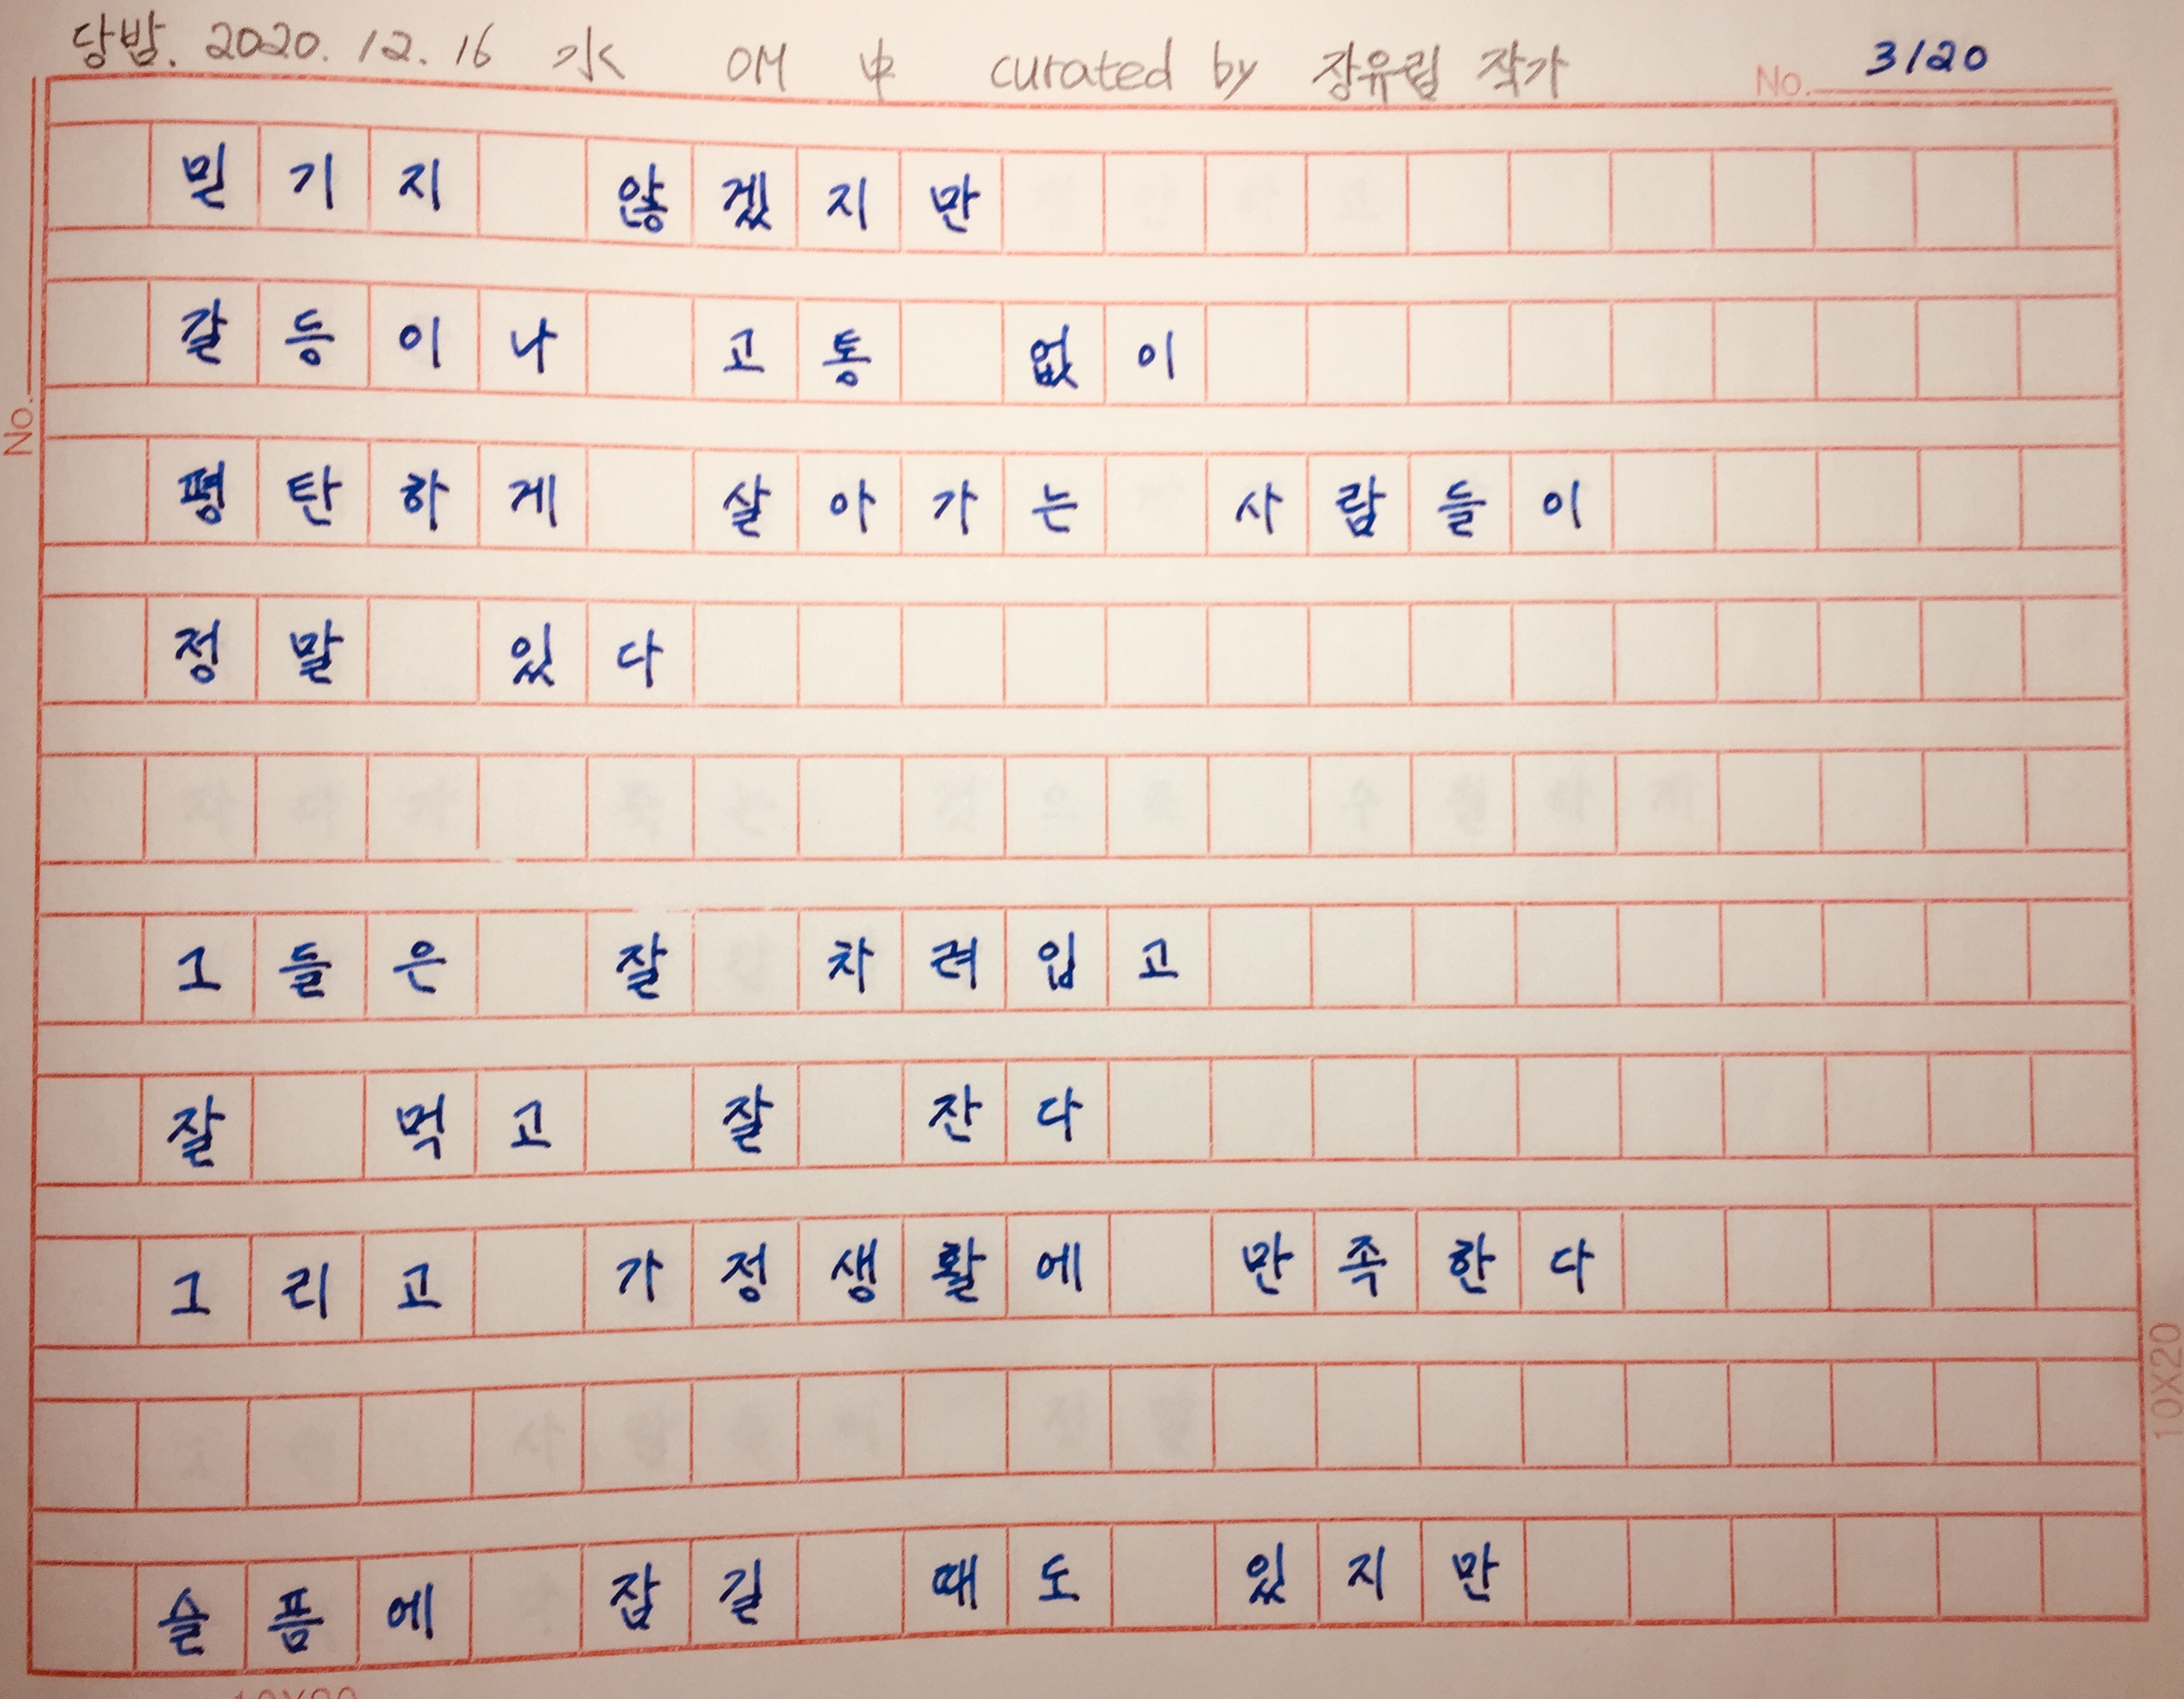 당밤. 2020. 12. 16 水 OM 中 curated by 장유림 작가
No. 3/20
믿기지 않겠지만
갈등이나 고통 없이
평탄하게 살아가는 사람들이
정말 있다
그들은 잘 차려입고
잘 먹고 잘 잔다
그리고 가정생활에 만족한다
슬픔에 잠길 때도 있지만
No.
10X20